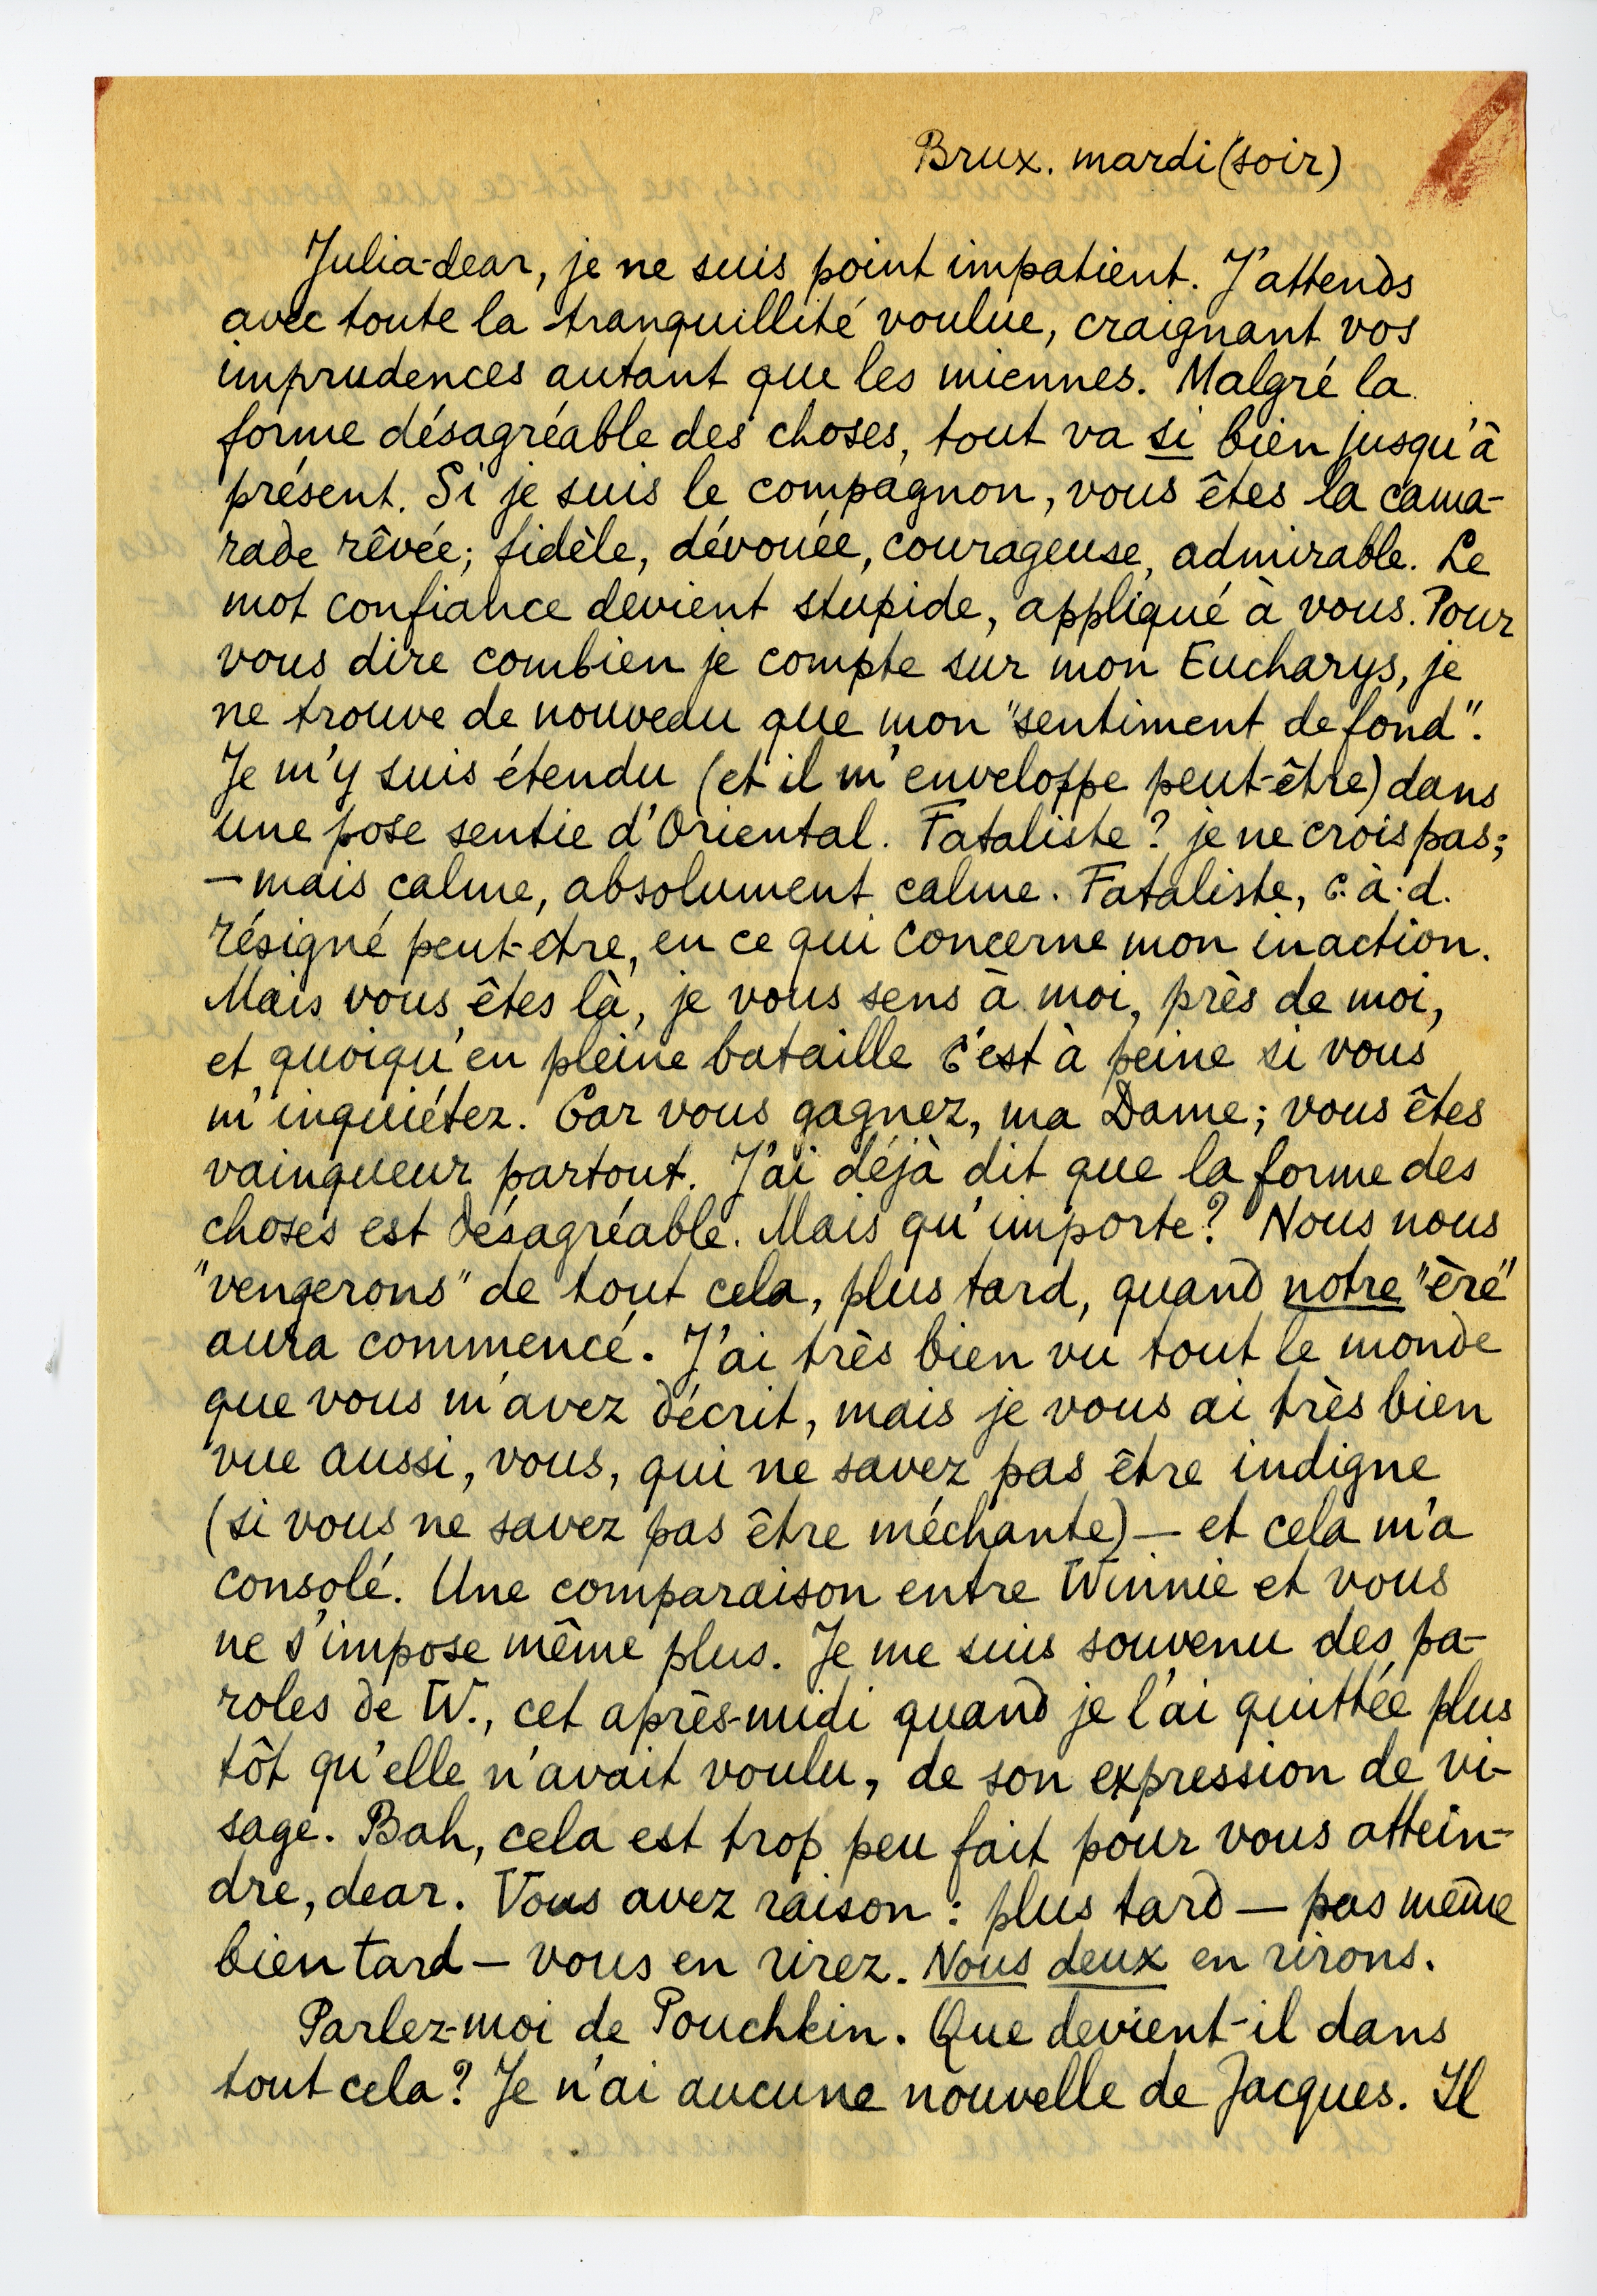 Brux. mardi (soir)
Julia-dear, je ne suis point impatient. J'attends
avec toute la tranquillité voulue, craignant vos
imprudences autant que les miennes. Malgré la
forme désagréable des choses, tout va si bien jusqu'à
présent. Si je suis le compagnon, vous êtes la cama-
rade rêvée; fidèle, dévouée, courageuse, admirable. Le
mot confiance devient stupide, appliqué à vous. Pour
vous dire combien je compte sur mon Eucharys, je
ne trouve de nouveau que mon "sentiment de fond".
Je m'y suis étendu (et il m'enveloppe peut-être) dans
une pose sentie d'Oriental. Fataliste? je ne crois pas;
—mais calme, absolument calme. Fataliste, c.à.d.
résigné peut-etre, en ce qui concerne mon inaction.
Mais vous êtes là, je vous sens à moi, près de moi,
et quoiqu'en pleine bataille c'est à peine si vous
m'inquiétez. Car vous gagnez, ma Dame; vous êtes
vainqueur partout. J'ai déjà dit que la forme des
choses est désagréable. Mais qu'importe? Nous nous
"vengerons" de tout cela, plus tard, quand notre "ère"
aura commencé. J'ai très bien vu tout le monde
que vous m'avez décrit, mais je vous ai très bien
vue aussi, vous, qui ne savez pas être indigne
(si vous ne savez pas être méchante) — et cela m'a
consolé. Une comparaison entre Winnie et vous
ne s'impose même plus. Je me suis souvenu des pa-
roles de W., cet après-midi quand je l'ai quittée plus
tôt qu'elle n'avait voulu, de son expression de vi-
sage. Bah, cela est trop peu fait pour vous attein-
dre, dear. Vous avez raison : plus tard — pas même
bien tard — vous en rirez. Nous deux en rirons.
Parlez-moi de Pouchkin. Que devient-il dans
tout cela? Je n'ai aucune nouvelle de Jacques. Il